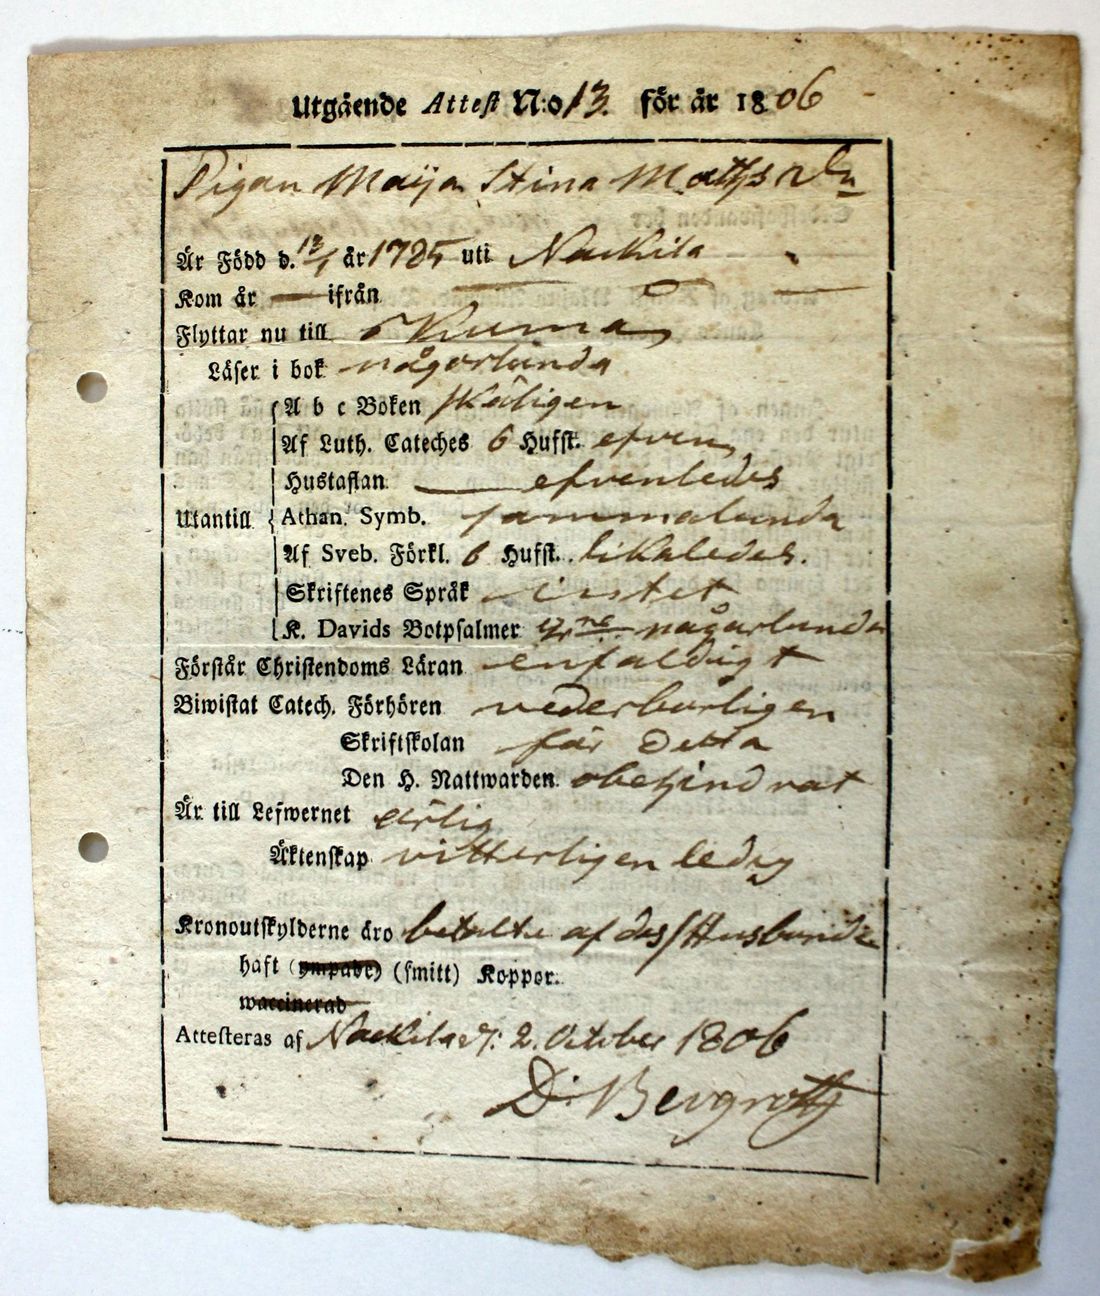 Utgående Attest N:o 13. för år 1806
Pigan Maija Stina Mattsdr
Är Född d. 13/1 år 1785 uti Nackila
Kom år — ifrån —
Flyttar nu till Kumo
Läser i bok någorlunda
A b c Boken skäligen
Af Luth. Cateches 6 Hufst. efven
Hustaflan efvenledes
Utantill Athan. Symb. sammalunda
Af Sveb. Förkl. 6 Hufst. likaledes.
Skriftenes Språk intet
K. Davids Botpsalmer någorlunda
Förstår Christendoms Läran enfaldigt
Biwistat Catech. Förhören vederbörligen
Skriftskolan för detta
Den H. Nattwarden obehindrat
Är till Lefwernet ärlig
Äktenskap vitterligen ledig
Kronoutskylderne äro betalte af dess Husbonde
haft (ympade) (smitt) Koppor.
waccinerad
Attesteras af Nackila d. 2. October 1806
D. Bergroth